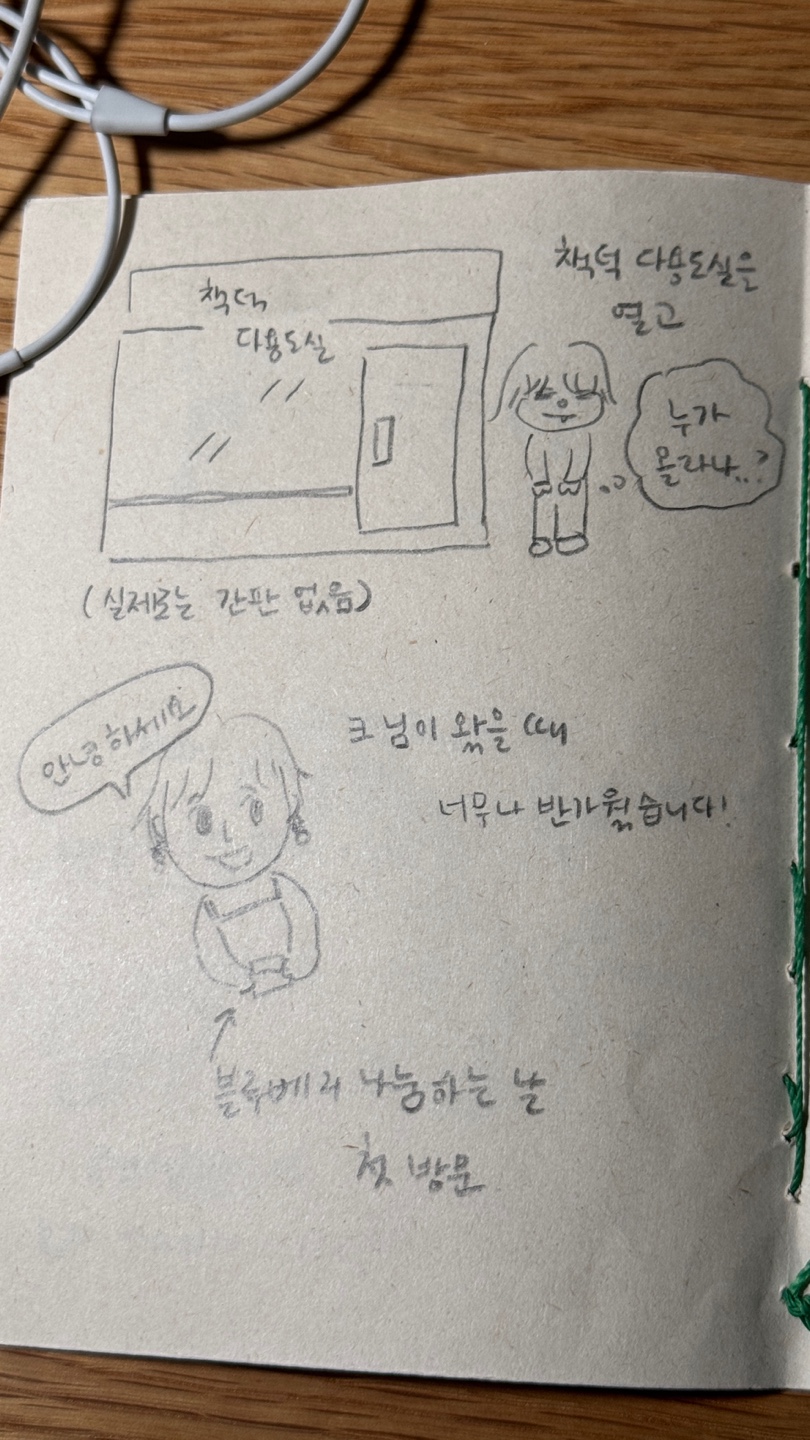 책덕
다용도실
책덕 다용도실을
열고
누가
올라나..?
(실제로는 간판 없음)
안녕하세요
크님이 왔을 때
너무나 반가웠습니다!
블루베리 나눔하는 날
첫 방문